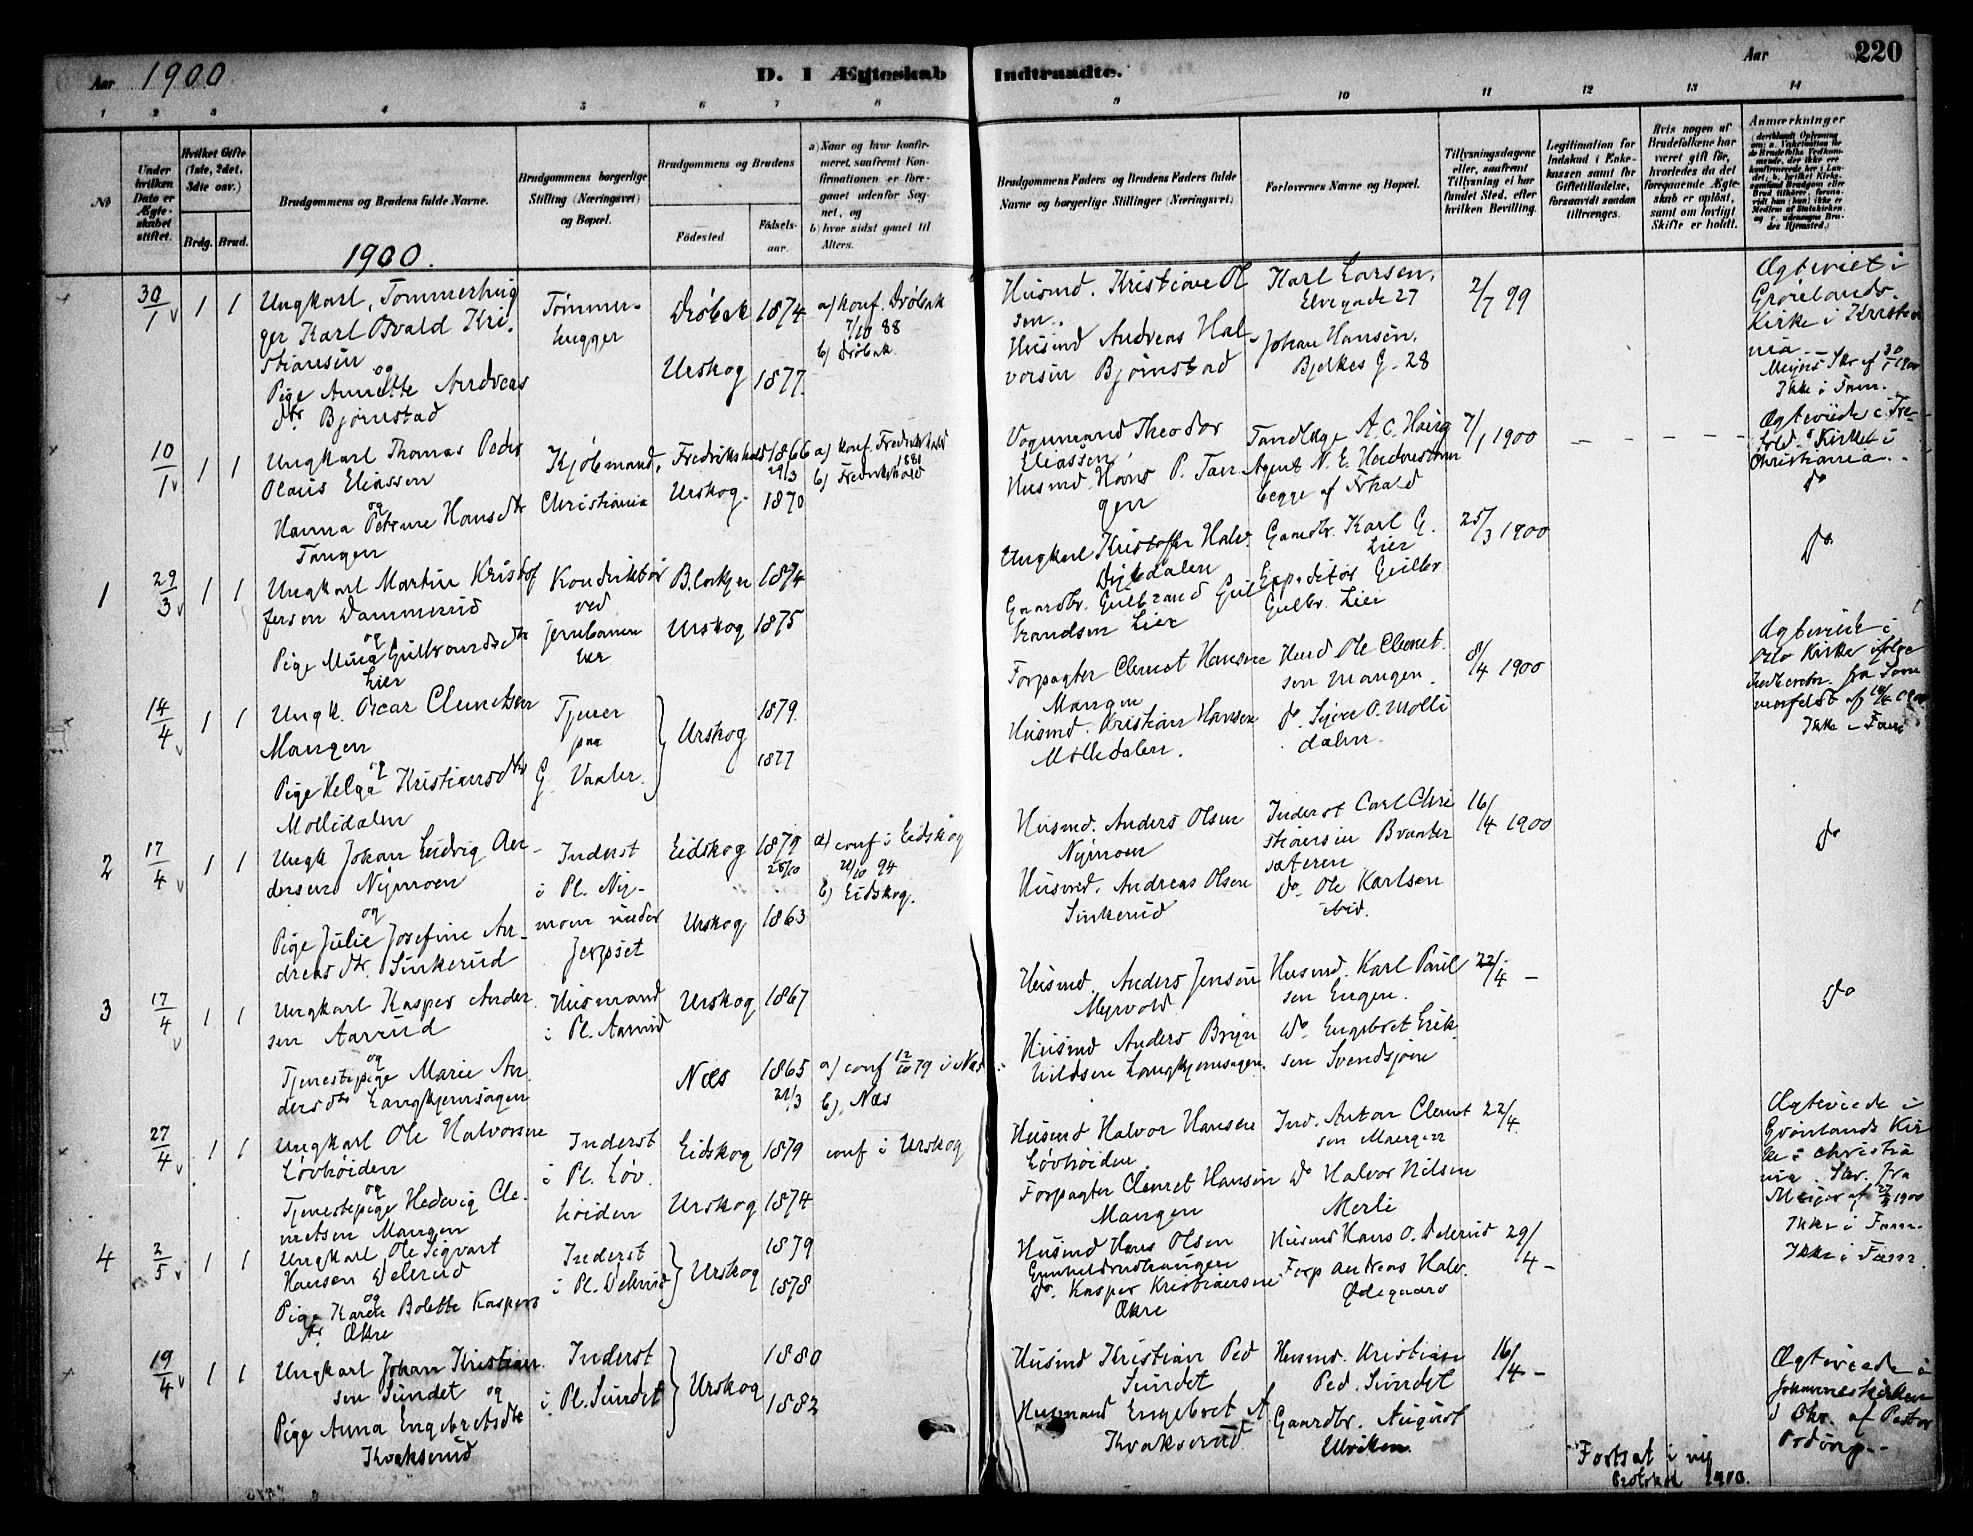 Aar 1900
D. I Ægteskab Indtraadte.
Aar 220
1 2 3 4 5 6 7 8 9 10 11 12 13 14
No
Under hvilken Dato er Ægteskabet stiftet.
Hvilket Gifte (1ste, 2det, 3dte osv.)
Brdg. Brud.
Brudgommens og Brudens fulde Navne.
Brudgommens borgerlige Stilling (Næringsvei) og Bopæl.
Brudgommens og Brudens
Fødested Fødselsaar.
a) Naar og hvor konfirmeret, saafremt Konfirmationen er foregaaet udenfor Sognet, og
b) hvor sidst gaaet til Alters.
Brudgommens Faders og Brudens Faders fulde Navne og borgerlige Stillinger (Næringsvei)
Forlovernes Navne og Bopæl.
Tillysningsdagene eller, saafremt Tillysning ei har fundet Sted, efter hvilken Bevilling.
Legitimation for Indskud i Enkekassen samt for Giftetilladelse, forsaavidt saadan tiltrænges.
Hvis nogen af Brudefolkene har været gift før, hvorledes da det foregaaende Ægteskab er opløst, samt om lovligt Skifte er holdt.
Anmærkninger
1900.
30/1 1 1
Ungkarl, Tømmerhug
ger Karl Osvald Kri-
stiansen
og
Pige Annette Andreas
dtr. Bjørnstad
Tømmer-
hugger
Drøbak 1874
Urskog 1877.
a) Konf. Drøbak
7/10 88
b) Drøbak.
Husmd. Kristian Ol
sen.
Husmd Andreas Hal-
vorsen Bjørnstad
Karl Larsen,
Elvegade 27
Johan Hansen,
Bjelkes G. 28
2/7 99
Ægteviet i
Grønlands
Kirke i Kristia
nia.
Ikke i Fam.
10/1 1 1
Ungkarl Thomas Peder
Olaus Eliassen
og
Hanna Petrine Hansdtr
Tangen
Kjøbmand,
Christiania
Fredrikshald 1866
29/3
Urskog. 1870
a) Konf. Fredrikshald
1881
b) Fredrikshald
Vognmand Theodor
Eliassen
Husmd. Hans P. Tan
gen
Tandlæge A. C.
Agent N. E.
begge af Fhald
7/1 1900
Ægteviede i Tre-
fold. Kirke i
Christiania.
do
1 29/3 1 1
Ungkarl Martin Kristof
fersen Dammerud
og
Pige Mina Gulbrandsdtr
Lier
Konduktør
ved
Jernbanen
Blakjer 1874
Urskog 1875
Ungkarl Kristoffer Halv.
Digedalen
Gaardbr. Gulbrand Gul
brandsen Lier
Gaardbr. Karl G.
Lier
Expeditør Gulbr
Gulbr. Lier
25/3 1900
do
14/4 1 1
Ungk. Oscar Clemetsen
Mangen
og
Pige Helga Kristiansdtr
Mollidalen
Tjener
paa
G. Vaaler.
Urskog
1879.
1877
Forpagter Clemet Hansen
Mangen
Husmd. Kristian Hansen
Mollidalen.
Husmd Ole Clemet
sen Mangen.
do. O. Molli
dalen.
8/4 1900
Ægteviede i
Oslo Kirke ifølge
Ikke i Fam
2 17/4 1 1
Ungk Johan Ludvig An-
dersen Nymoen
og
Pige Julie Josefine An-
dreasdtr. Sinkerud
Inderst
i Pl. Ny-
moen under
Jerpset
Eidskog 1879
28/10
Urskog 1863
a) conf i Eidskog
21/10 94
b) Eidskog.
Husmd. Anders Olsen
Nymoen
Husmd. Andreas Olsen
Sinkerud
Inderst Carl Chri
stiansen Braate
sæteren
do Ole Karlsen
ibid.
16/4 1900
do
3 17/4 1 1
Ungkarl Kasper Ander
sen Aarrud
og
Tjenestepige Marie An
dersdtr Langkjernsagen
Husmand
i Pl. Aarrud
Urskog 1867
Næs 1865
21/3
a) conf 12/10 79 i Næs
b) Næs
Husmd. Anders Jensen
Myrvold
Husmd Anders Bryn
hildsen Langkjernsagen
Husmd. Karl Paul
sen Engen.
do Engebret Erik
sen Svendsjøen
22/4 -
do
27/4 1 1
Ungkarl Ole Halvorsen
Løvhøiden
og
Tjenestepige Hedevig Cle
metsen Mangen
Inderst
i Pl. Løv
høiden
Eidskog 1879
Urskog 1874
conf i Urskog
Husmd Halvor Hansen
Løvhøiden
Forpagter Clemet Hansen
Mangen
Ind. Anton Clemet
sen Mangen
do Halvor Nilsen
Merli
22/4.
Ægteviede i
Grønlands Kir
ke i Christia
nia. Skr. fra
Ikke i Fam.
4 2/5 1 1
Ungkarl Ole Sigvart
Hansen Delerud
og
Pige Karen Bolette Kaspers
dtr. Økre
Inderst
i Pl. Delerud
Urskog
1879
1878
Husmd Hans Olsen
do. Kasper Kristiansen
Økre
Husmd Hans O. Delerud
Forp Andreas Halv.
Ødegaard
29/4 -
Ikke i Fam.
19/4 1 1
Ungkarl Johan Kristian
sen Sundet og
Pige Anna Engebretsdtr
Kvakserud
Inderst
i Pl. Sundet
Urskog
1880
1882
Husmd Kristian Ped
Sundet
Husmand Engebret A
Kvakserud
Husmd. Kristian
Ped. Sundet
Gaardbr. August
Ulviken.
16/4 -
Ægteviede i
Johanneskirken
i Chr. af Pastor
Fortsat i ny
Protokol 1900.